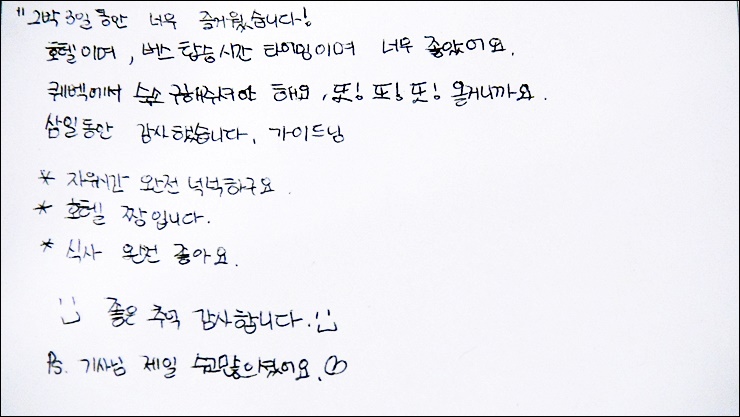 "2박 3일 동안 너무 즐거웠습니다!
호텔이며, 버스 탑승시간 타이밍이며 너무 좋았어요.
퀘벡에서 숙소 구해주셔야 해요, 또! 또! 또! 올거니까요.
삼일동안 감사했습니다. 가이드님
* 자유시간 완전 넉넉하구요.
* 호텔 짱입니다.
* 식사 완전 좋아요.
좋은 추억 감사합니다.
Ps. 기사님 제일 수고많으셨어요.